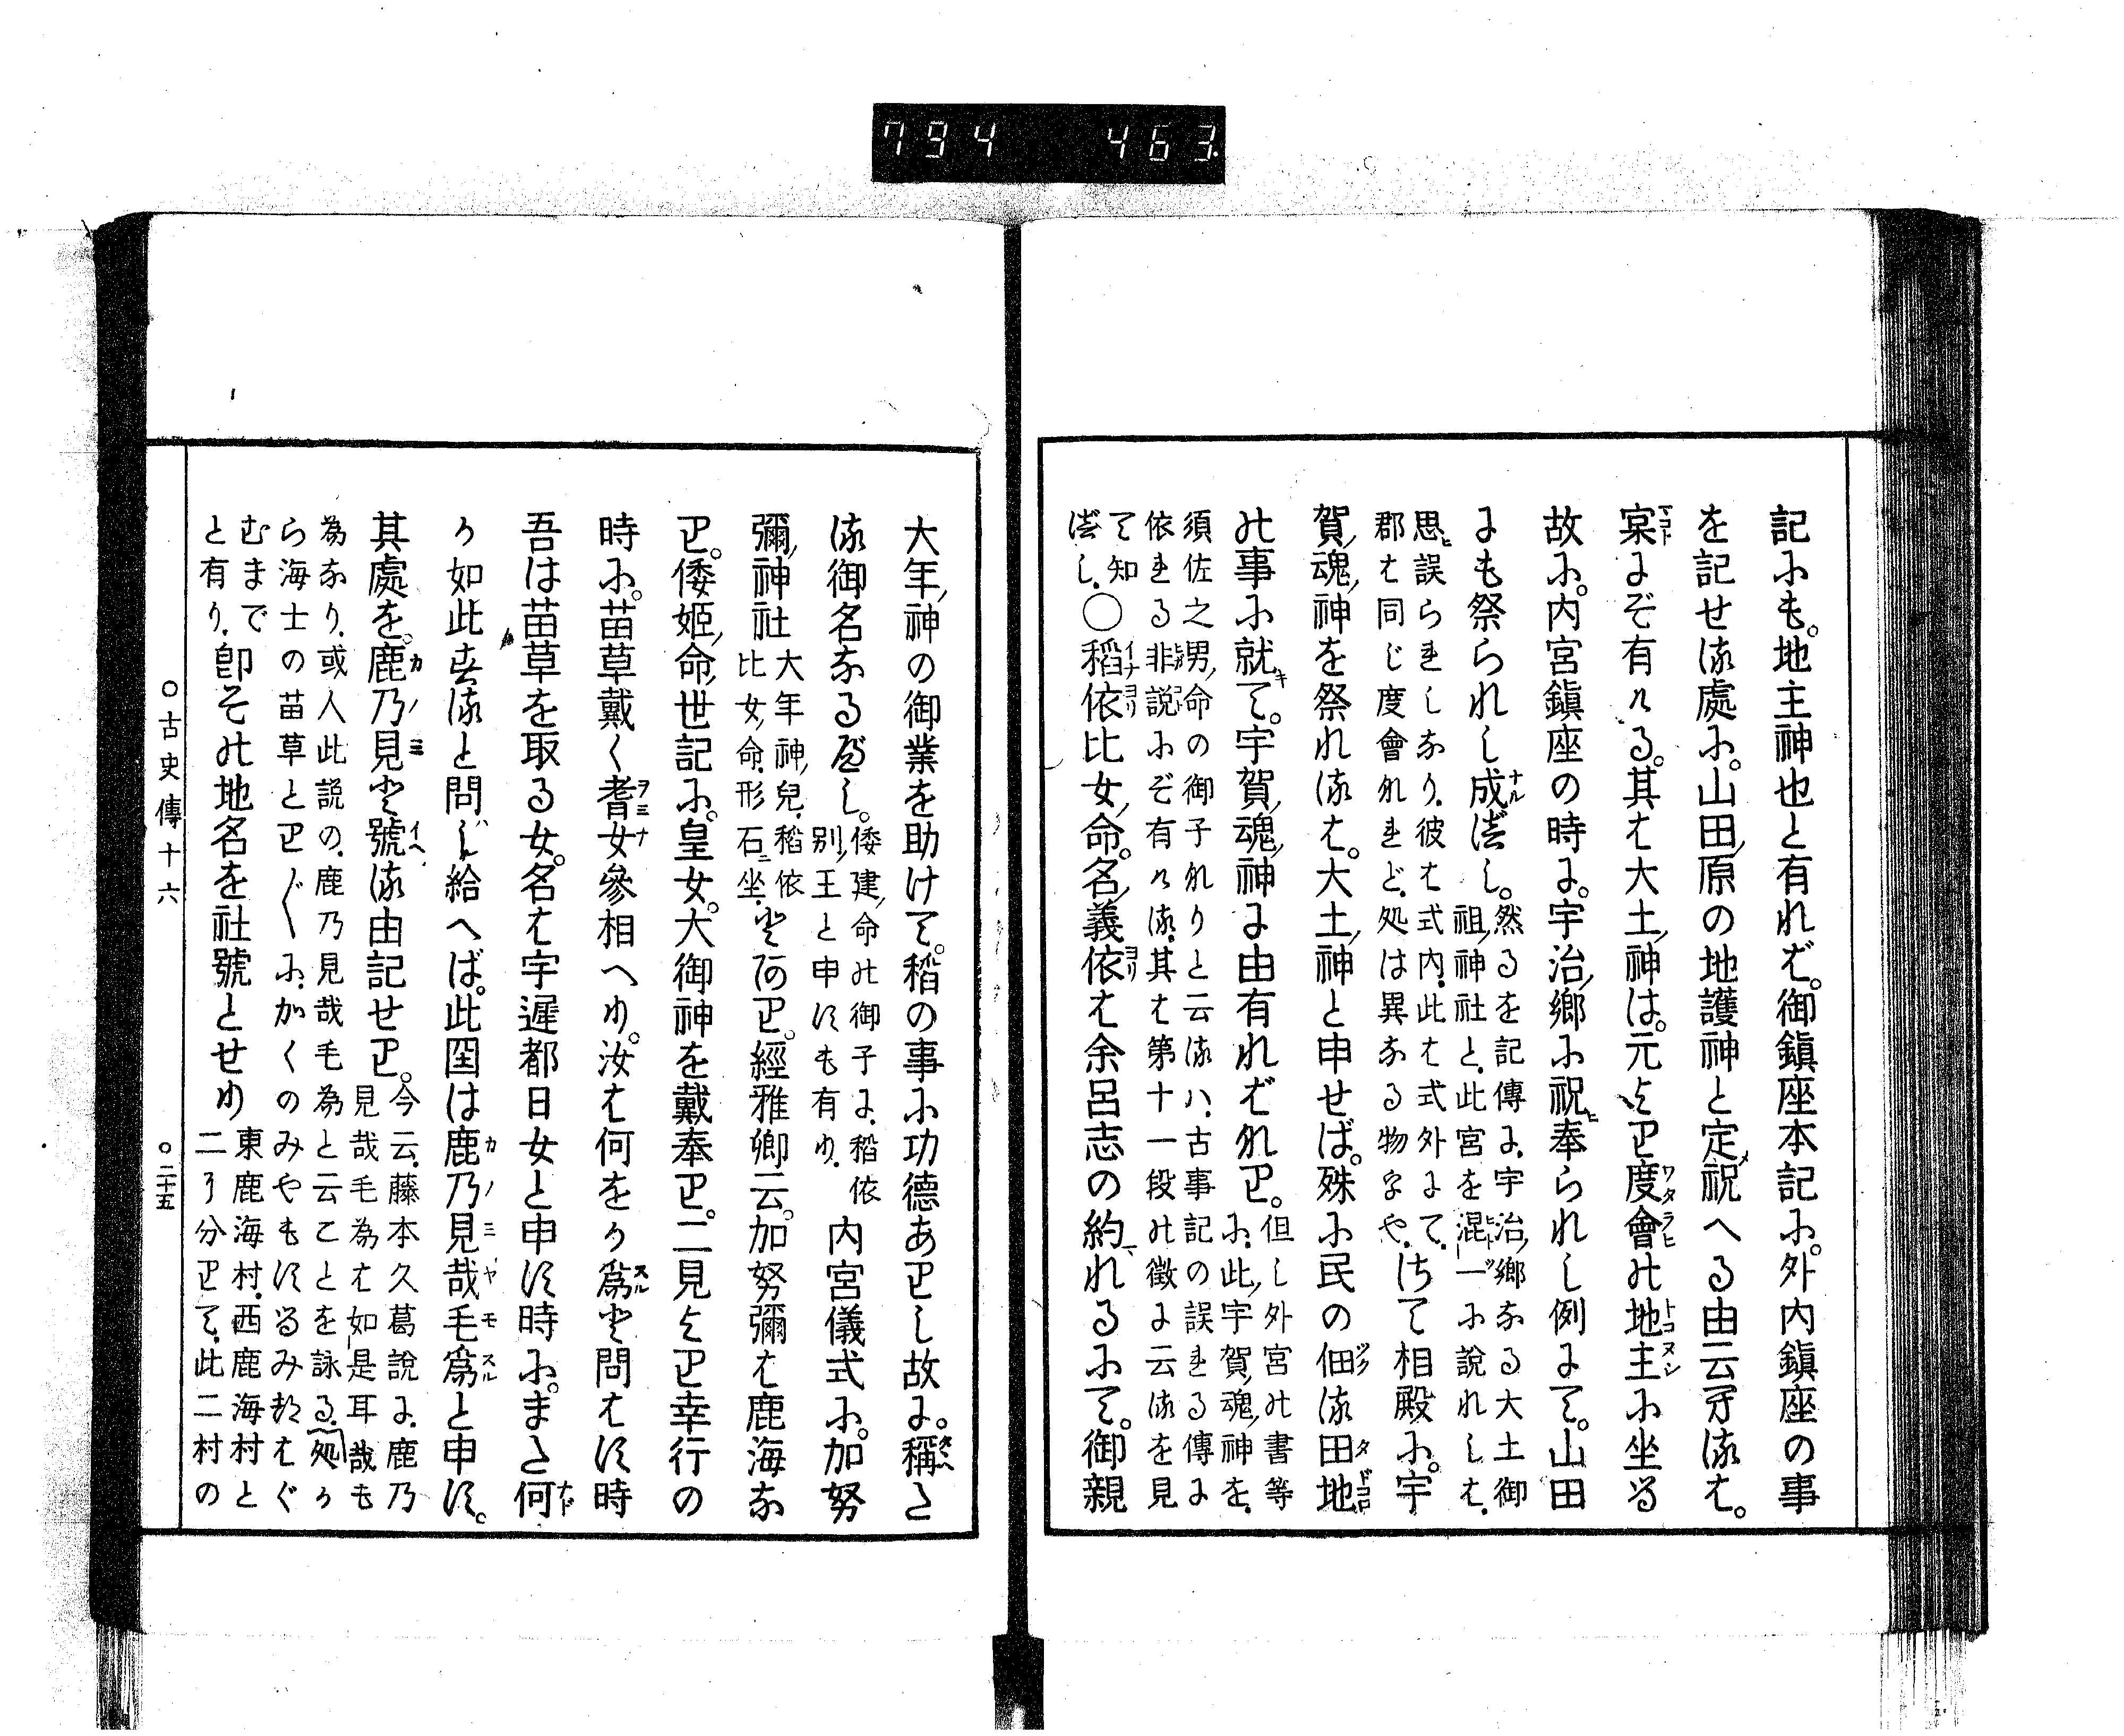 794 463
記にも。地主神也と有れば。御鎭座本記に。外内鎭座の事
を記せる處に。山田原の地護神と定祝へる由云有るは。
實にぞ有ける。其は大土神は。元より度會の地主に坐る
故に。内宮鎭座の時に。宇治鄕に祝奉られし例にて。山田
にも祭られし成べし。
然るを記傳に。宇治鄕なる大土御
祖神社と。此宮を混一に說れしは。
思誤られしなり。彼は式内。此は式外にて。
郡は同じ度會なれど。処は異なる物をや。
さて相殿に。宇
賀魂神を祭れるは。大土神と申せば。殊に民の佃る田地
の事に就て。宇賀魂神に由有ればなり。
但し外宮の書等
に。此宇賀魂神を。
須佐之男命の御子なりと云るハ。古事記の誤れる傳に
依れる非說にぞ有ける。其は第十一段の徵に云るを見
て知
べし。
○稻依比女命。名義依は余呂志の約れるにて。御親
大年神の御業を助けて。稻の事に功德ありし故に。稱た
る御名なるべし。
倭建命の御子に。稻依
別王と申すも有り。
内宮儀式に。加努
彌神社
大年神兒。稻依
比女命。形石坐。
とあり。經雅卿云。加努彌は鹿海な
り。倭姬命世記に。皇女。大御神を戴奉り。二見より幸行の
時に。苗草戴く耆女參相へり。汝は何をか爲と問はす時
吾は苗草を取る女。名は宇遲都日女と申す時に。また何
か如此する と問し給へば。此囯は鹿乃見哉毛爲と申す。
其處を。鹿乃見と號る由記せり。
今云。藤本久葛說に。鹿乃
見哉毛為は如是耳哉も
為なり。或人此説の。鹿乃見哉毛為と云ことを詠る処か
ら海士の苗草とり〴〵に。かくのみやもするみるはぐ
むまで
と有り。
卽その地名を社號とせり
東鹿海村。西鹿海村と
二ツ分りて。此二村の
○古史傳十六 ○二十五